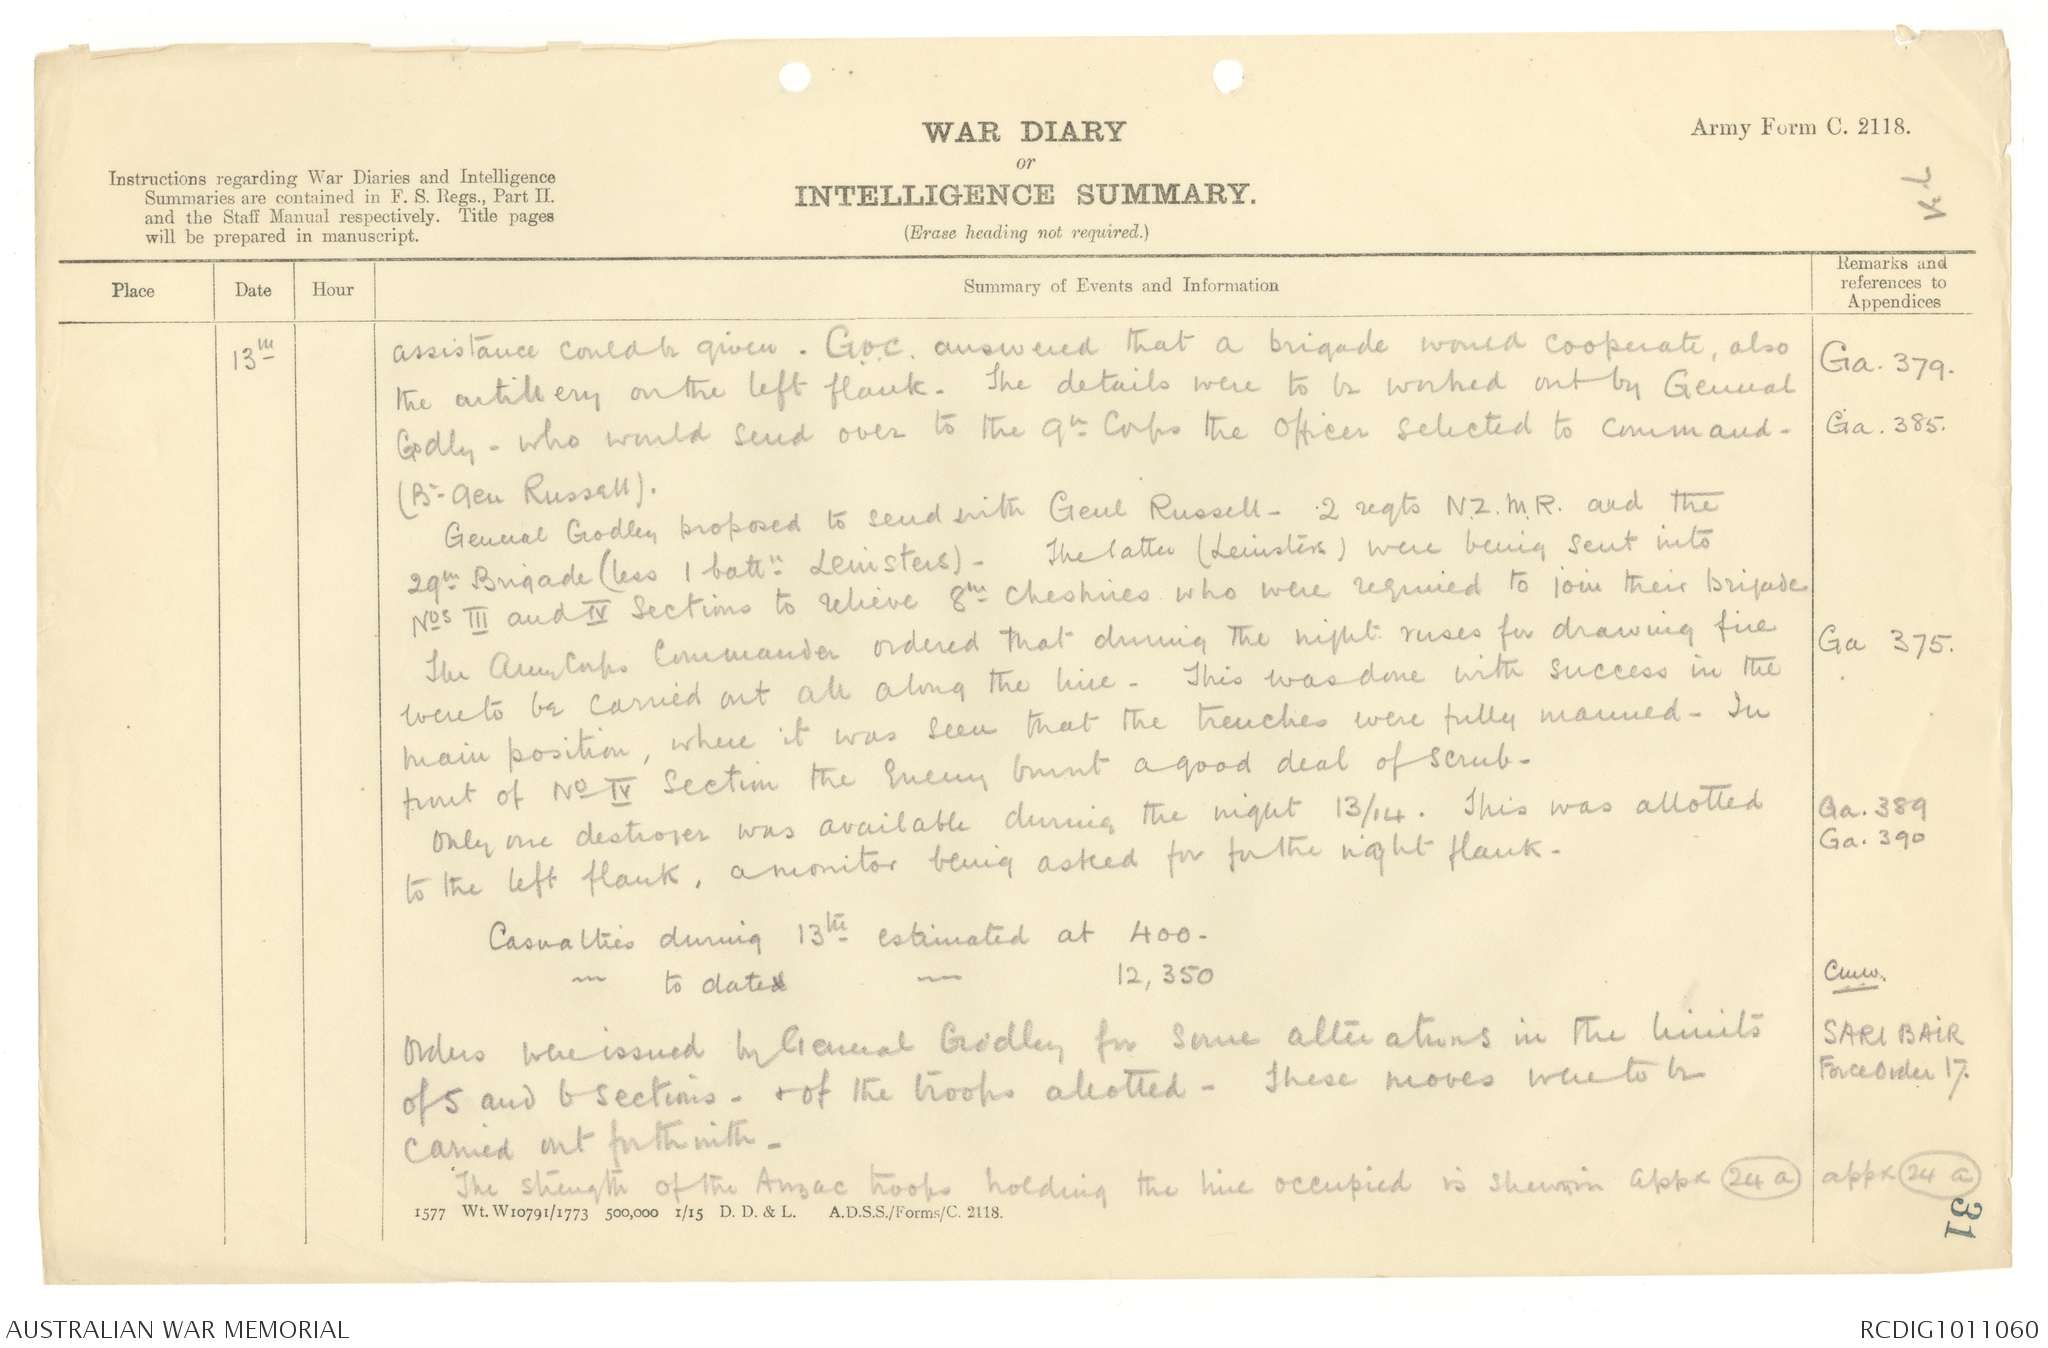 WAR DIARY
or
INTELLIGENCE SUMMARY.
(Erase heading not required.)
Army Form C. 2118.
Instructions regarding War Diaries and Intelligence
Summaries are contained in F. S. Regs., Part II.
and the Staff Manual respectively. Title pages
will be prepared in manuscript.
Place
Date
Hour
Summary of Events and Information
Remarks and
references to
Appendices
13th
assistance could be given. G.O.C. answered that a brigade would cooperate, also
Ga. 379.
the artillery on the left flank. The details were to be worked out by General
Godly - who would send over to the 9th Corps the Officer selected to command -
Ga. 385.
(Br- Gen Russell).
General Godley proposed to send with Genl Russell - 2 regts N.Z.M.R. and the
29th Brigade (less 1 battn Leinsters) - The latter (Leinsters) were being sent into
Nos III and IV Sections to relieve 8th Cheshires who were required to join their brigade
The Army Corps Commander ordered that during the night ruses for drawing fire
Ga 375.
were to be carried out all along the line - This was done with success in the
main position, where it was seen that the trenches were fully manned - In
front of No IV Section the Enemy burnt a good deal of scrub -
Only one destroyer was available during the night 13/14. This was allotted
Ga. 389
to the left flank, a monitor being asked for for the right flank -
Ga. 390
Casualties during 13th estimated at 400 -
" to date " 12,350
Orders were issued by General Godley for some alterations in the limits
SARI BAIR
of 5 and 6 Sections - + of the troops allotted - These moves were to be
Force Order 17.
carried out forthwith -
The strength of the Anzac troops holding the line occupied is shewn in appx 24 a
appx 24 a
31
1577 Wt. W10791/1773 500,000 1/15 D. D. & L. A.D.S.S./Forms/C. 2118.
AUSTRALIAN WAR MEMORIAL
RCDIG1011060